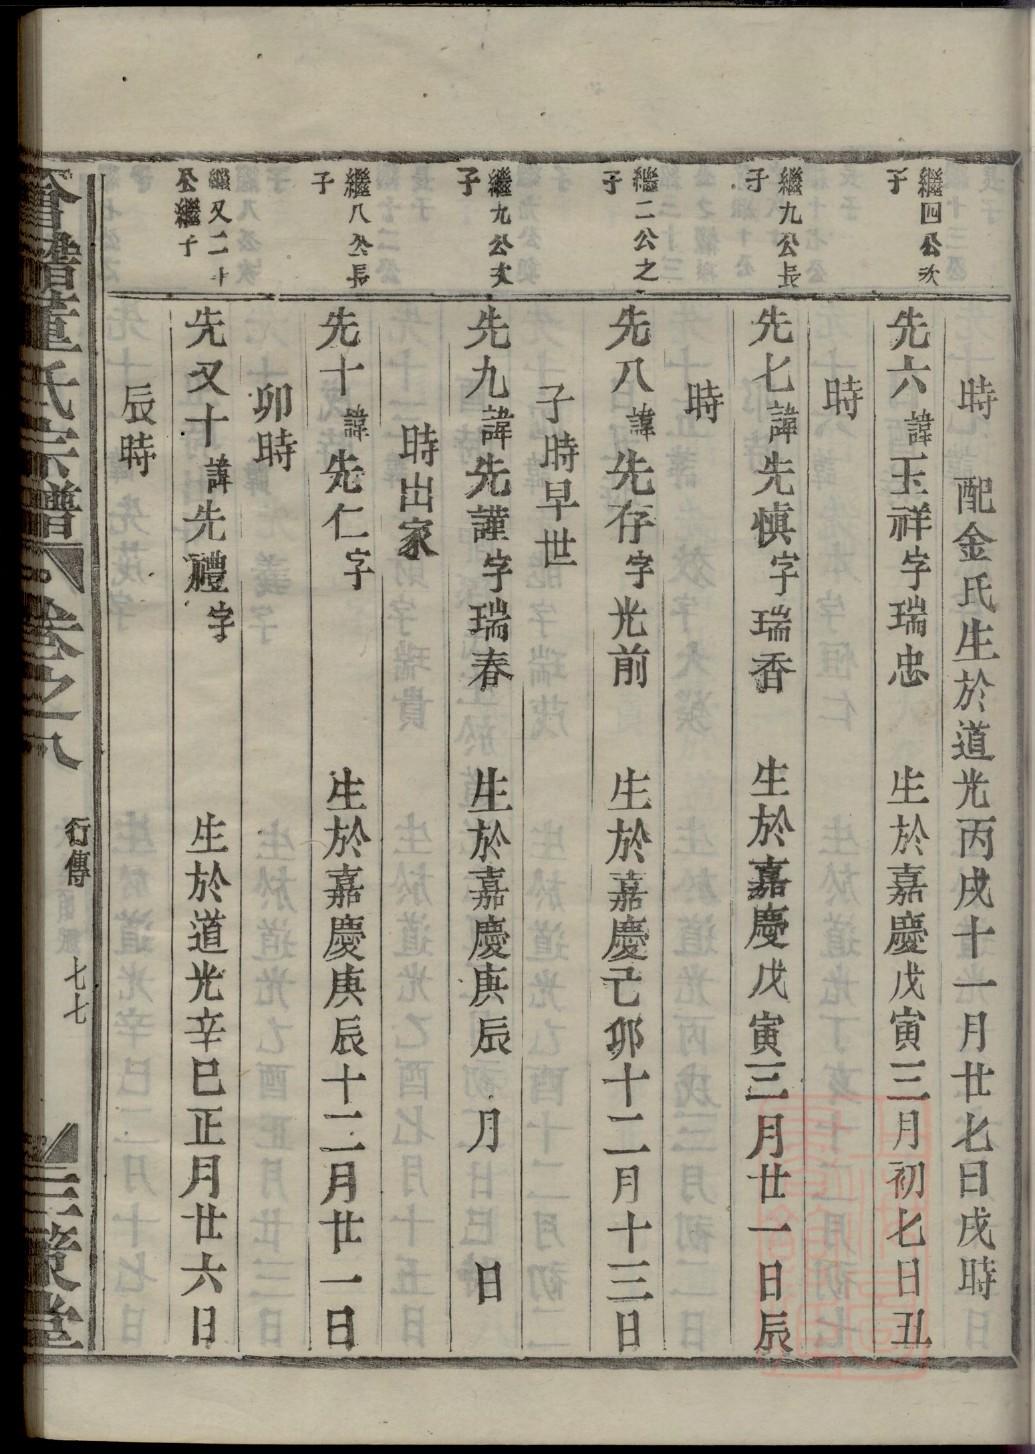 時　配金氏生於道光丙戌十一月廿七日戌時
繼四公次子
先六諱玉祥字瑞忠　生於嘉慶戊寅三月初七日丑
時
繼九公長子
先七諱先慎字瑞香　生於嘉慶戊寅三月廿一日辰
時
繼二公之子
先八諱先存字光前　生於嘉慶己卯十二月十三日
子時早世
繼九公次子
先九諱先謹字瑞春　生於嘉慶庚辰　月　日
時出家
繼八公長子
先十諱先仁字　生於嘉慶庚辰十二月廿一日
卯時
繼又二十公繼子
先又十諱先禮字　生於道光辛巳正月廿六日
辰時
董氏宗譜　卷之八　衍傳　七七　三策堂